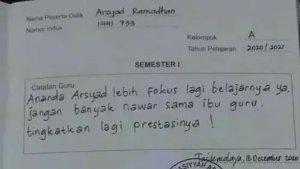 Nama Peserta Didik Arsyad Ramadhan
Nomor Induk 1441 733
Kelompok A
Tahun Pelajaran 2020/2021
SEMESTER I
Catatan Guru
Ananda Arsyad lebih fokus lagi belajarnya ya,
jangan banyak nawar sama ibu guru.
tingkatkan lagi prestasinya !
Tasikmalaya, 18 Desember 2020